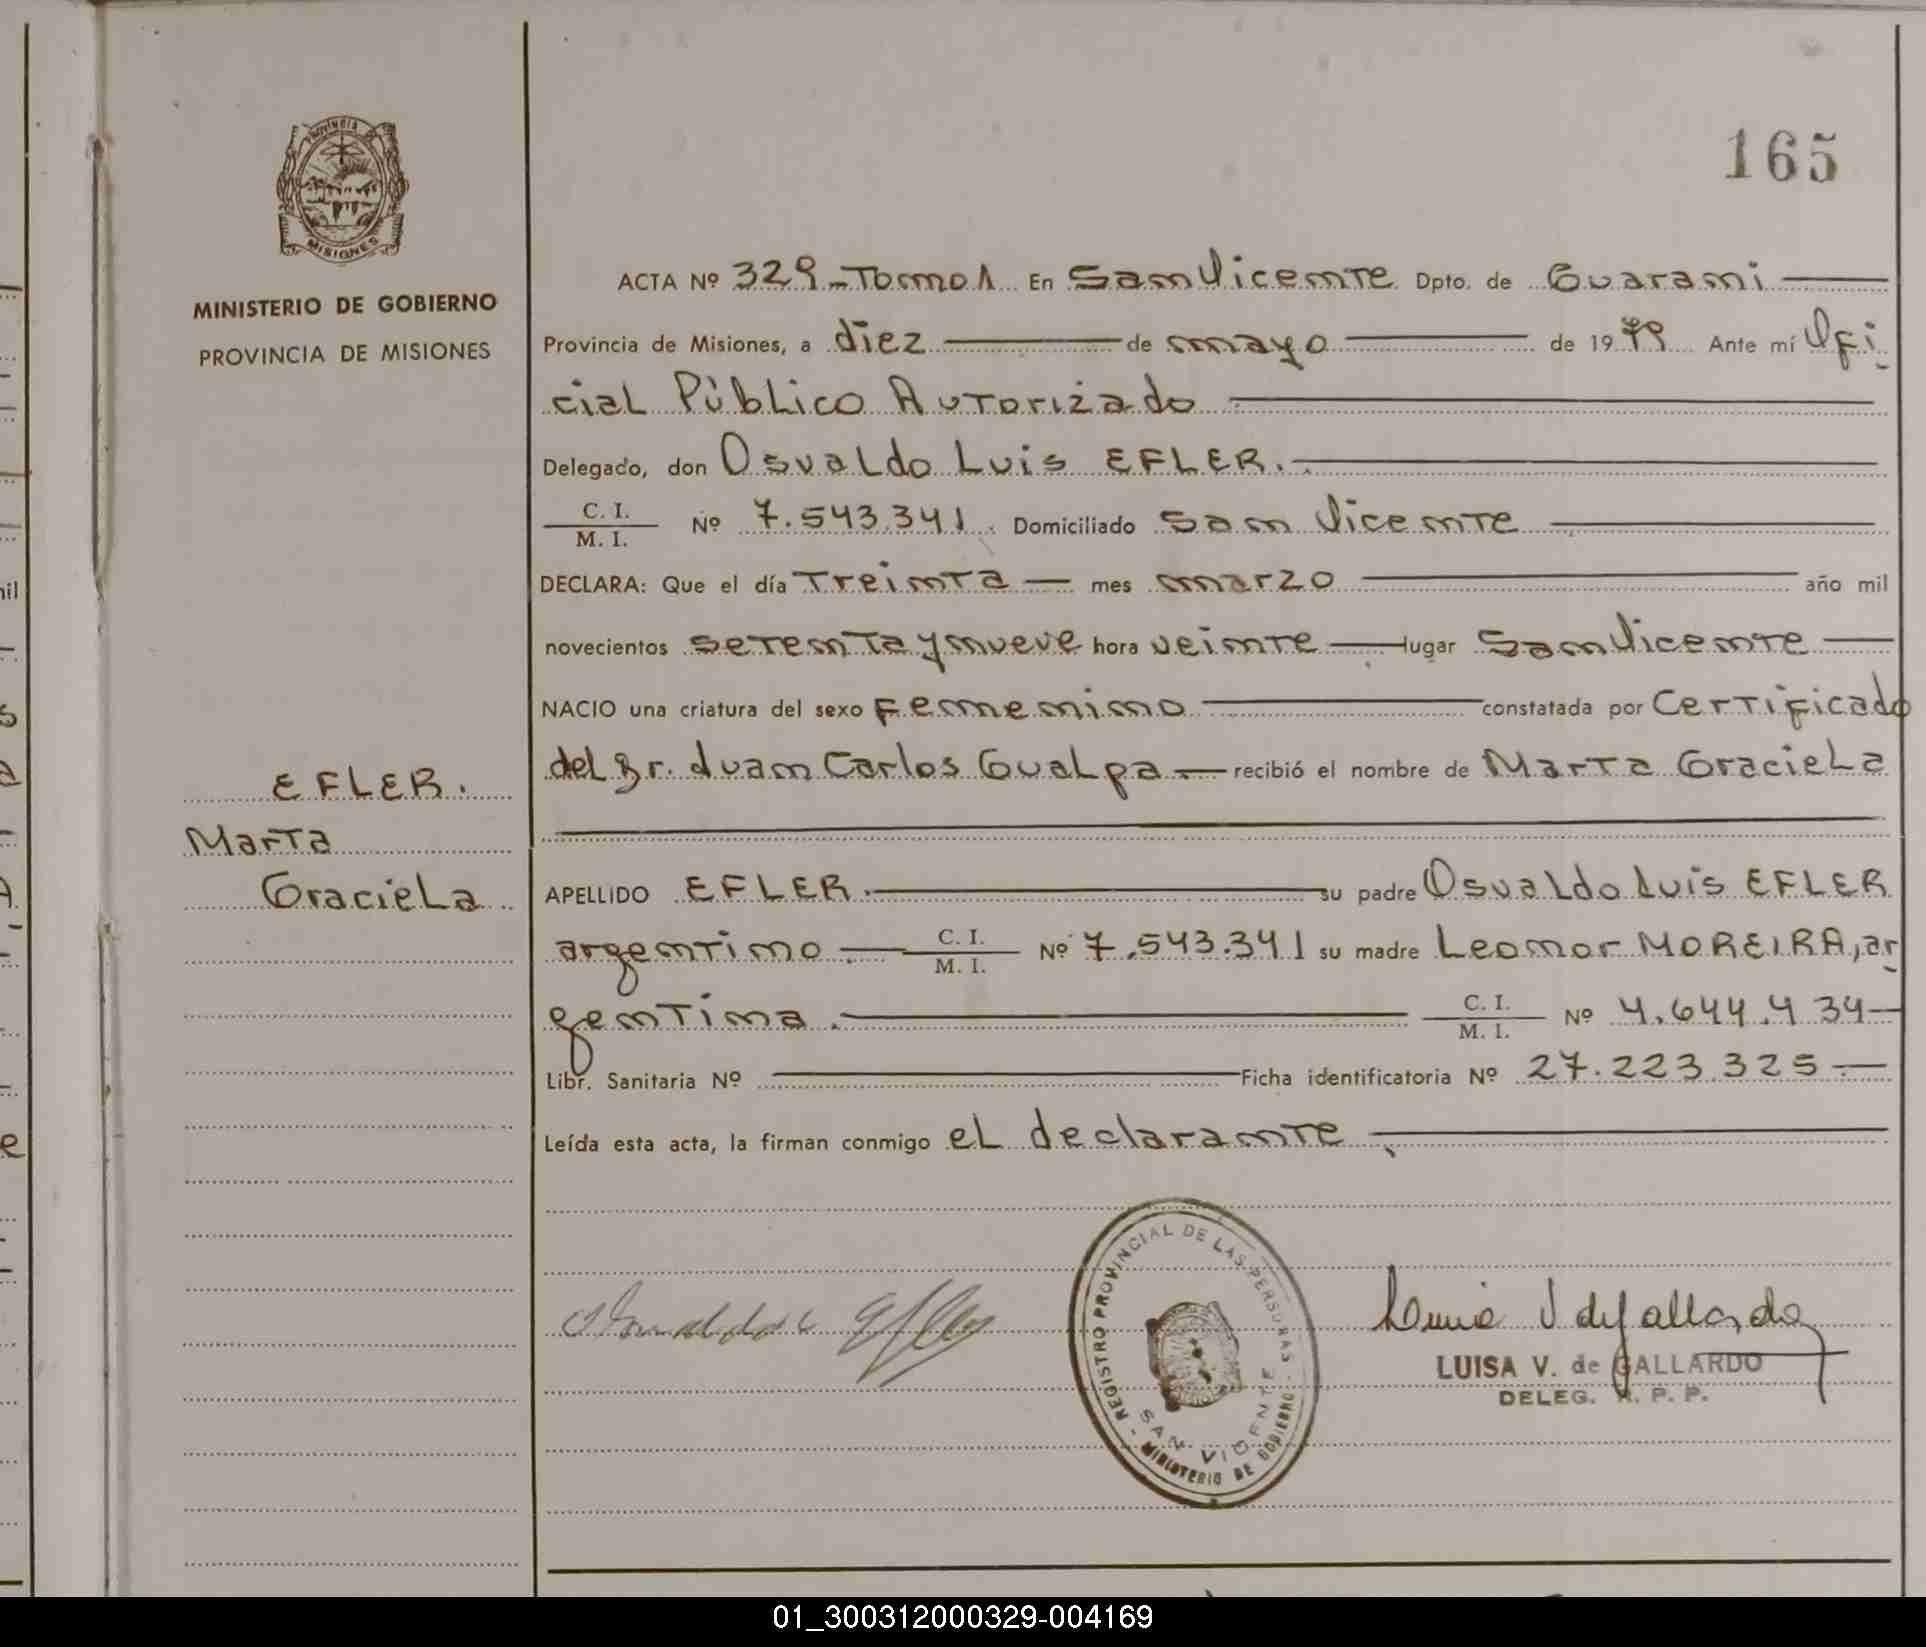 165
PROVINCIA DE
MISIONES
MINISTERIO DE GOBIERNO
PROVINCIA DE MISIONES
ACTA Nº 329-Tomo 1 En San Vicente Dpto. de Guarani
Provincia de Misiones, a diez de mayo de 1979 Ante mí Ofi
cial Público Autorizado
Delegado, don Osvaldo Luis EFLER.
C. I.
M. I. Nº 7.543.341 Domiciliado San Vicente
DECLARA: Que el día Treinta mes marzo año mil
novecientos setenta y nueve hora veinte lugar San Vicente
NACIO una criatura del sexo Femenino constatada por Certificado
del Dr. Juan Carlos Gualpa recibió el nombre de Marta Graciela
EFLER.
Marta
Graciela
APELLIDO EFLER. su padre Osvaldo Luis EFLER
argentino C. I. M. I. Nº 7.543.341 su madre Leonor MOREIRA, ar
gentina. C. I. M. I. Nº 4.644.434
Libr. Sanitaria Nº Ficha identificatoria Nº 27.223.325
Leída esta acta, la firman conmigo el declarante
REGISTRO PROVINCIAL DE LAS PERSONAS
SAN VICENTE
MINISTERIO DE GOBIERNO
LUISA V. de GALLARDO
DELEG. R. P. P.
01_300312000329-004169